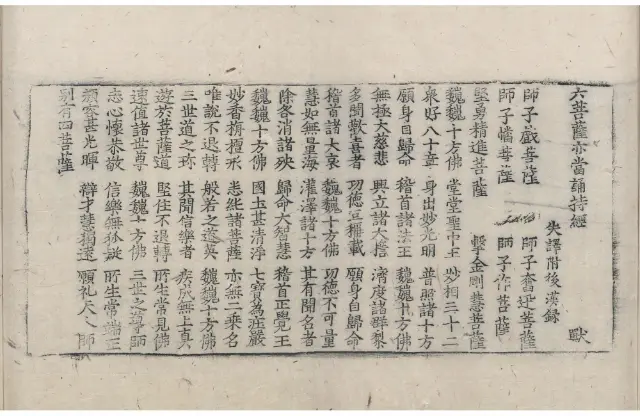 六菩薩亦當誦持經 歐
失譯附後漢錄
師子戲菩薩 師子奮迅菩薩
師子幡菩薩 師子作菩薩
堅勇精進菩薩 擊金剛慧菩薩
魏魏十方佛 堂堂聖中王 妙相三十二
衆好八十章 身出妙光明 普照諸十方
願身自歸命 稽首諸法王 魏魏十方佛
無極大慈悲 興立諸大擔 濟度諸群黎
多聞歡喜者 功德 載 願身自歸命
稽首諸大哀 魏魏十方佛 功德不可量
慧如無量海 灌澤諸十方 其有聞名者
除各消諸殃 歸命大智慧 稽首正覺王
魏魏十方佛 國土甚清淨 七寶為莊嚴
妙香 悉 諸菩薩 亦無二乗名
唯說不退轉 般若之 英 魏魏十方佛
三世道之珎 其聞信樂者 疾成無上真
遊於菩薩道 堅住不退轉 所生常見佛
速值諸世尊 魏魏十方佛 三世之導師
志心懷恭敬 信樂無狐疑 所生常端正
顏容甚光暉 辯才慧獨達 願礼天人師
別有四菩薩